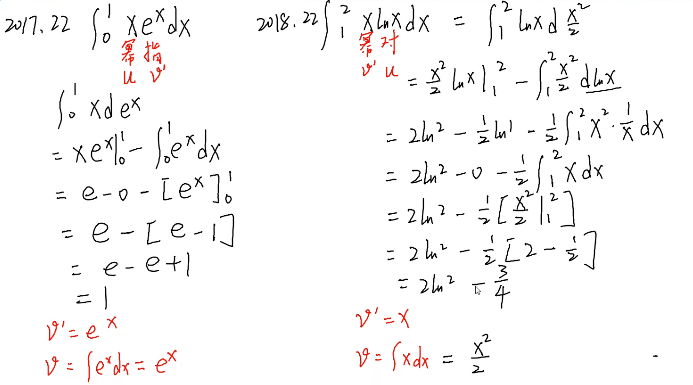 2017.22 ∫₀¹ xeˣdx
幂 指
u v'
∫₀¹ xdeˣ
= xeˣ|₀¹ - ∫₀¹ eˣdx
= e-0-[eˣ]₀¹
= e-[e-1]
= e-e+1
= 1
v'=eˣ
v=∫eˣdx=eˣ
2018.22 ∫₁² xlnxdx = ∫₁² lnx d x²/2
幂 对
v' u
= x²/2 lnx|₁² - ∫₁² x²/2 dlnx
= 2ln² - 1/2 ln¹ - 1/2 ∫₁² x²·1/x dx
= 2ln² - 0 - 1/2 ∫₁² xdx
= 2ln² - 1/2 [x²/2 |₁²]
= 2ln² - 1/2 [2 - 1/2]
= 2ln² - 3/4
v'=x
v=∫xdx = x²/2